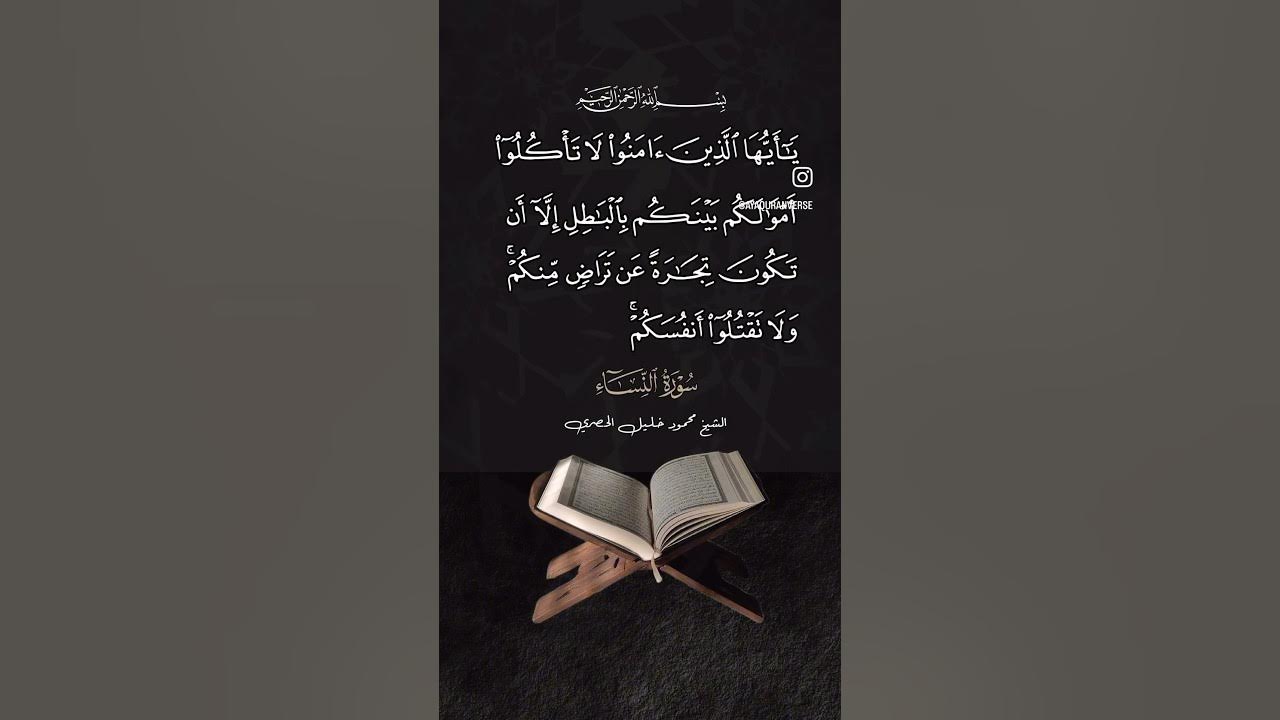 بِسْمِ ٱللَّهِ ٱلرَّحْمَٰنِ ٱلرَّحِيمِ
يَٰٓأَيُّهَا ٱلَّذِينَ ءَامَنُوا۟ لَا تَأْكُلُوٓا۟
@AYAQURANVERSE
أَمْوَٰلَكُم بَيْنَكُم بِٱلْبَٰطِلِ إِلَّآ أَن
تَكُونَ تِجَٰرَةً عَن تَرَاضٍ مِّنكُمْ ۚ
وَلَا تَقْتُلُوٓا۟ أَنفُسَكُمْ ۚ
سُورَةُ ٱلنِّسَاءِ
الشيخ محمود خليل الحصري